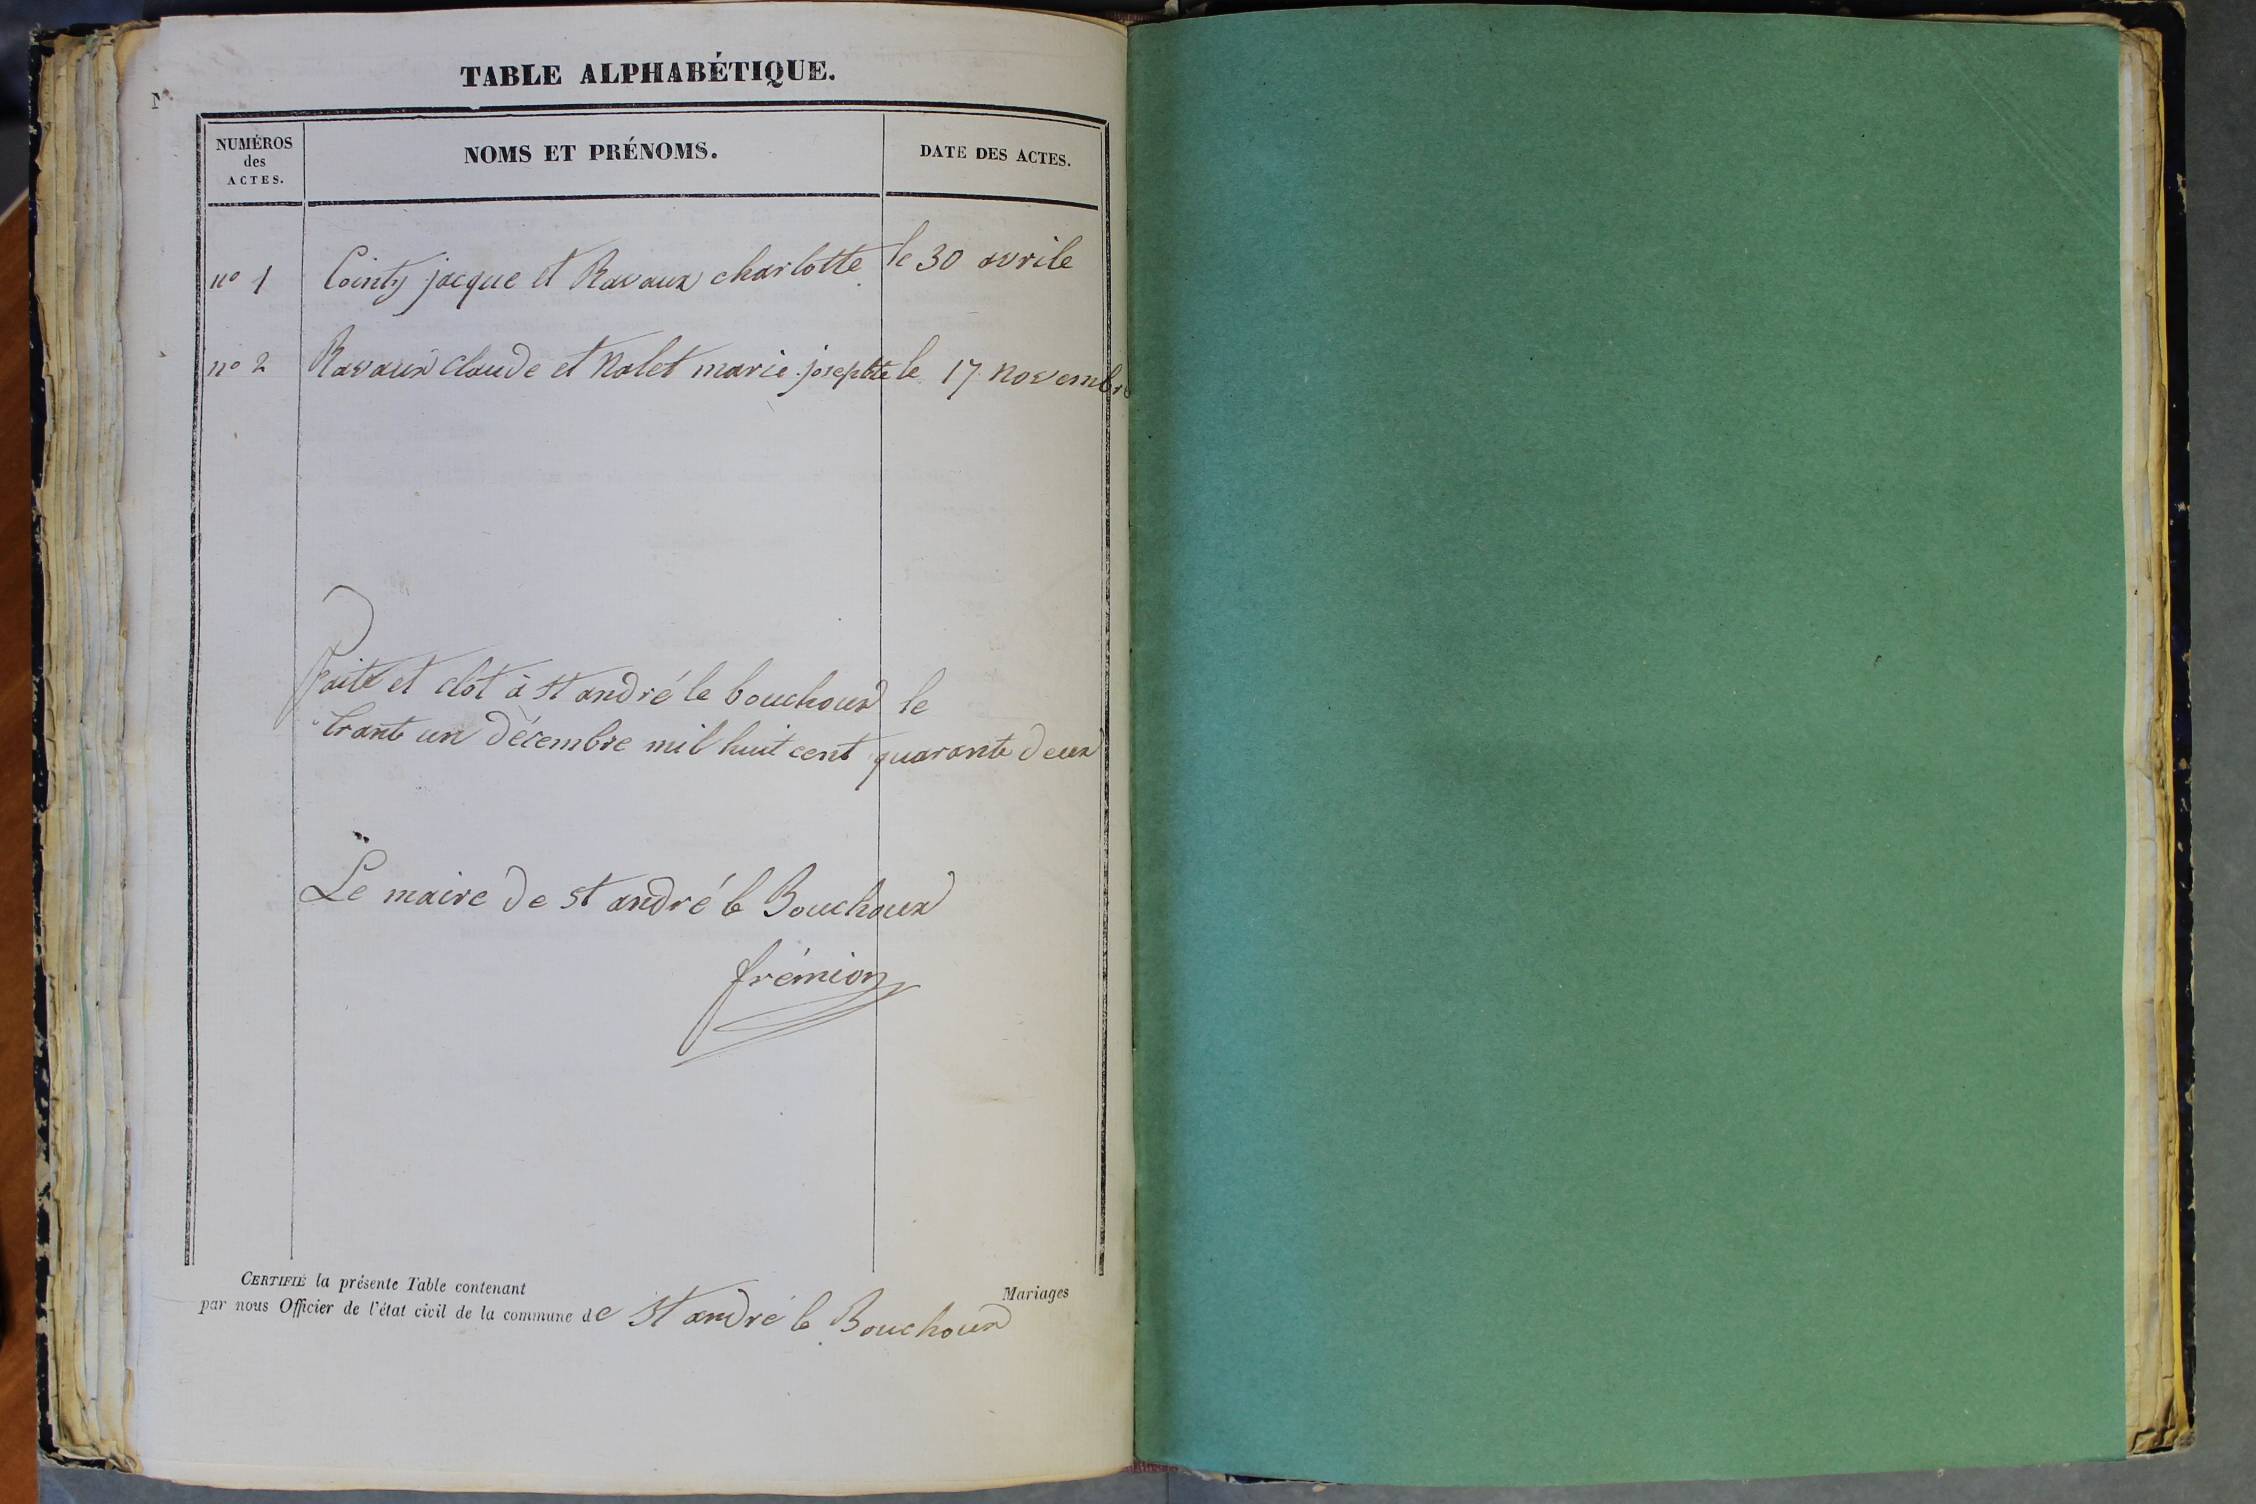 TABLE ALPHABÉTIQUE.
NUMÉROS
des
ACTES.
NOMS ET PRÉNOMS.
DATE DES ACTES.
no 1 Cointy jacque et Ravaux charlotte le 30 avrile
no 2 Ravaux claude et Nalet marie josephte le 17 novembre
faite et clot à st andré le bouchoux le
trante un décembre mil huit cent quarante deux
Le maire de st andré le Bouchoux
frémion
CERTIFIÉ la présente Table contenant Mariages
par nous Officier de l'état civil de la commune de st andré le Bouchoux